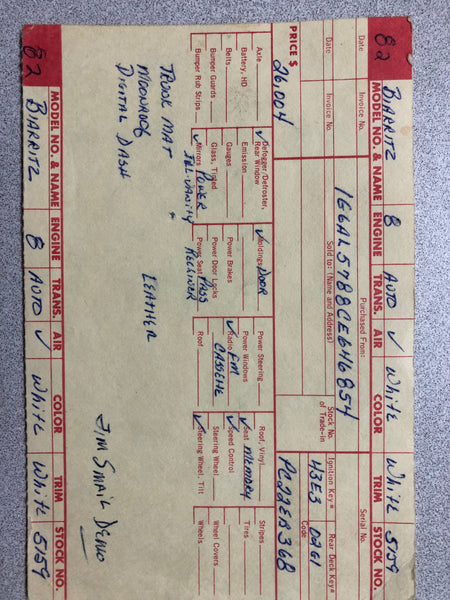 82 BIARRITZ 8 AUTO ✓ White White 5159
MODEL NO. & NAME ENGINE TRANS. AIR COLOR TRIM STOCK NO.
Date Invoice No. Purchased From: Serial No.
1G6AL5788CE646854
Date Invoice No. Sold to: (Name and Address) Stock No. of Trade-in Ignition Key# Rear Deck Key#
H3E3 0261
Code
PRICE $ 26,004 PC22ER368
Axle Defogger/Defroster, Rear Window ✓ Moldings DOOR ✓ Power Steering Roof, Vinyl Stripes
Battery, HD Emission Power Brakes Power Windows Seat MEMORY ✓ Tires
Belts Gauges Power Door Locks Radio FM CASSETTE ✓ Speed Control ✓
Bumper Guards Glass, Tinted Power Seat PASS RECLINER Steering Wheel
Bumper Rub Strips Mirrors POWER ILL-VANITY ✓ Roof Steering Wheel, Tilt ✓ Wheels
TRUNK MAT LEATHER
MOONROOF
DIGITAL DASH
Jim Smail Demo
MODEL NO. & NAME ENGINE TRANS. AIR COLOR TRIM STOCK NO.
82 BIARRITZ 8 AUTO ✓ White White 5159